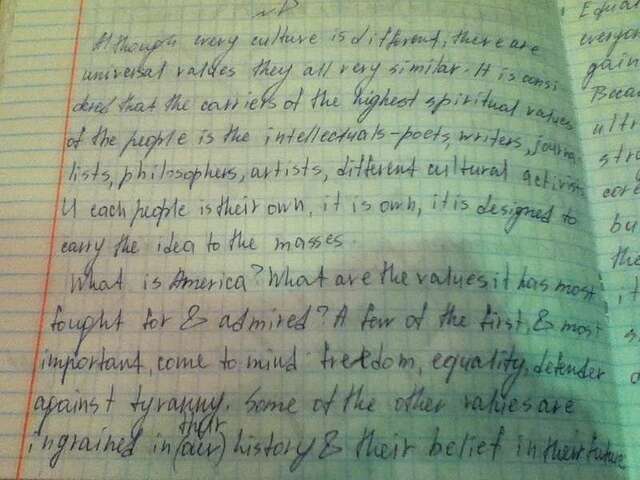 Although every culture is different, there are
universal values they all very similar. It is consi
dered that the carriers of the highest spiritual values
of the people is the intellectuals-poets, writers, journa
lists, philosophers, artists, different cultural activists
U each people is their own, it is own, it is designed to
carry the idea to the masses.
What is America? What are the values it has most
fought for & admired? A few of the first, & most
important, come to mind: freedom, equality, defender
against tyranny. Some of the other values are
their
ingrained in (our) history & their belief in their future
Equa
everyon
gain
Beca
ultr
str
cor
bu
the
it
s